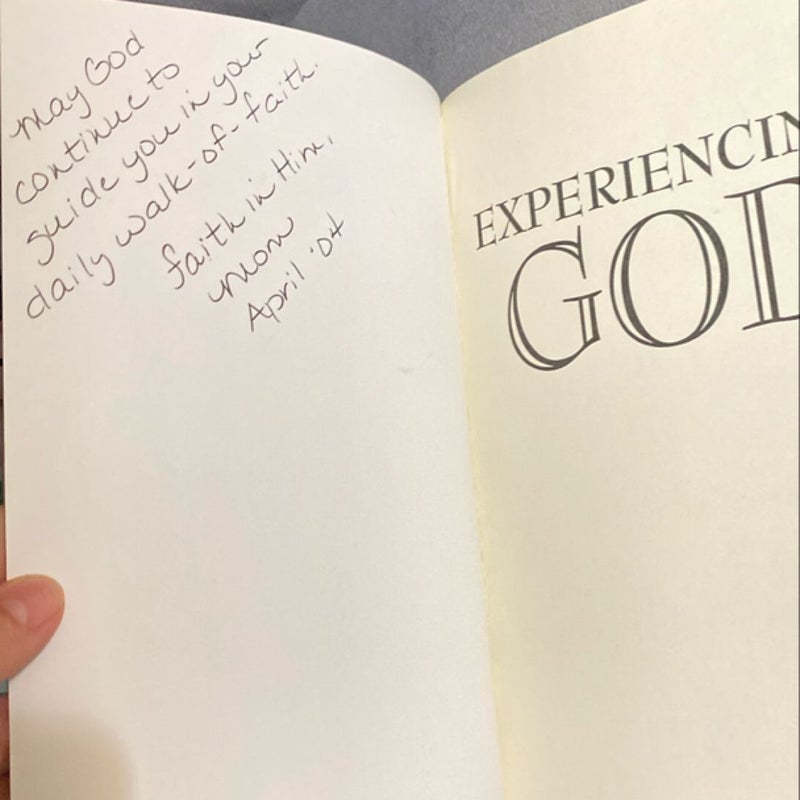 may God
continue to
guide you in your
daily walk-of-faith.
faith in Him,
mom
April '04
EXPERIENCIN
GOD